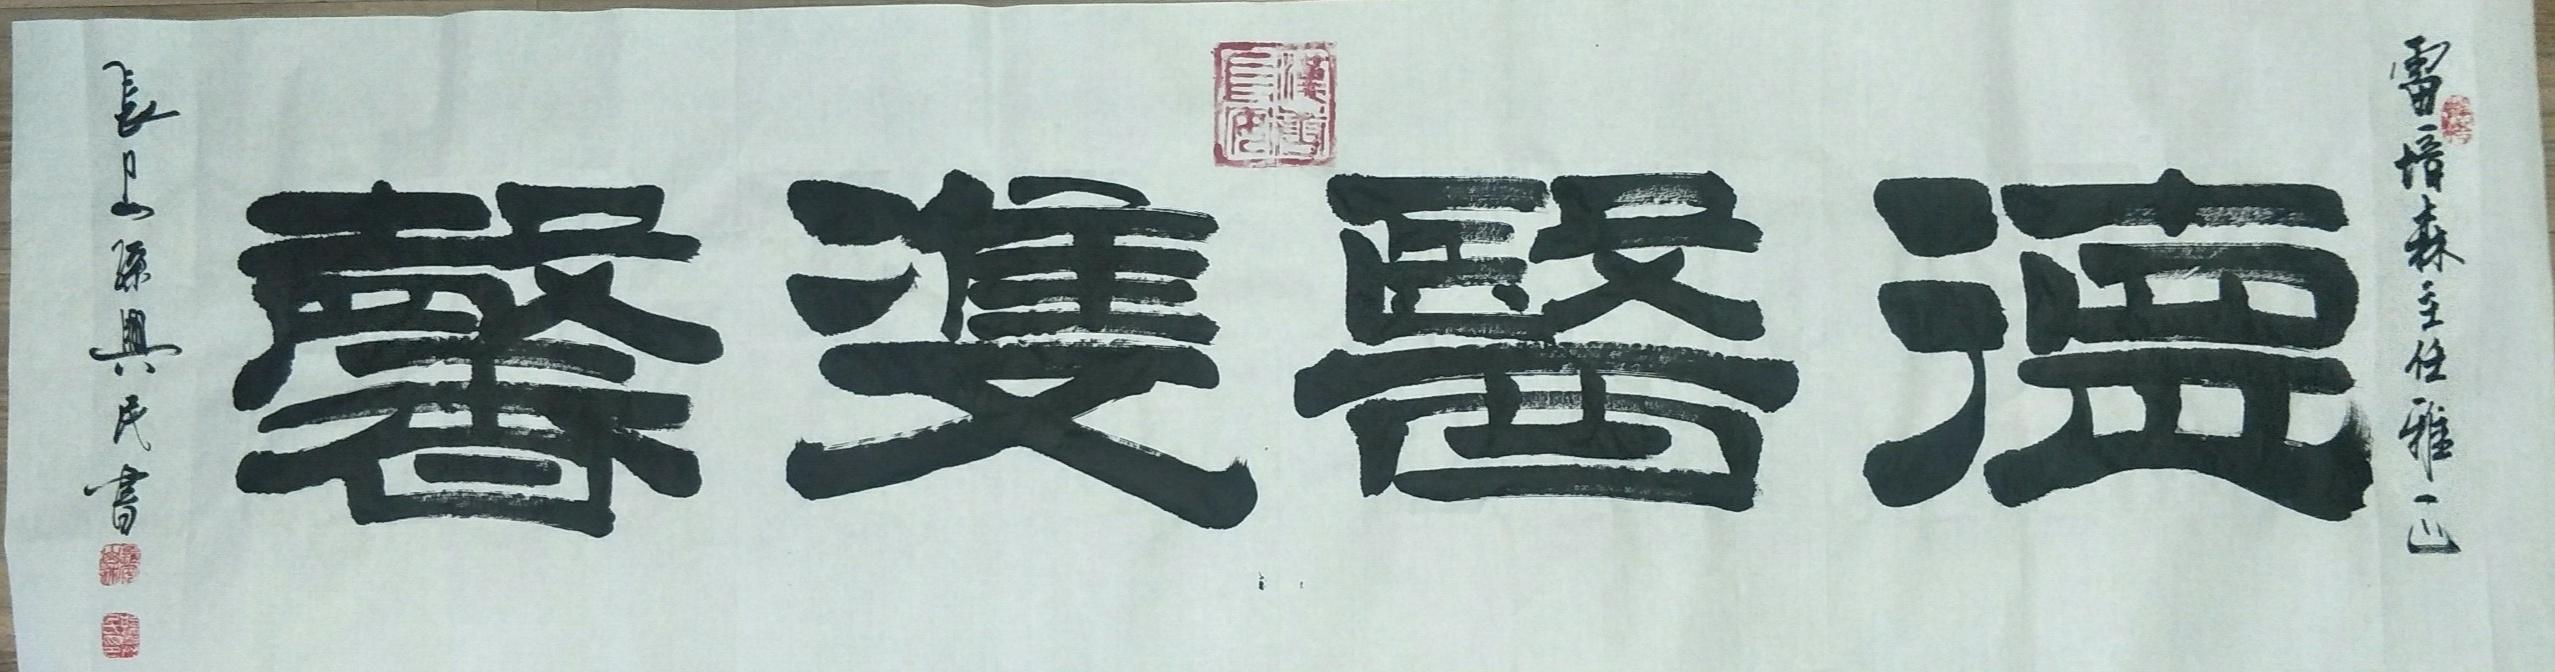 雷培森主任雅正
德醫雙馨
長白山孫興民書